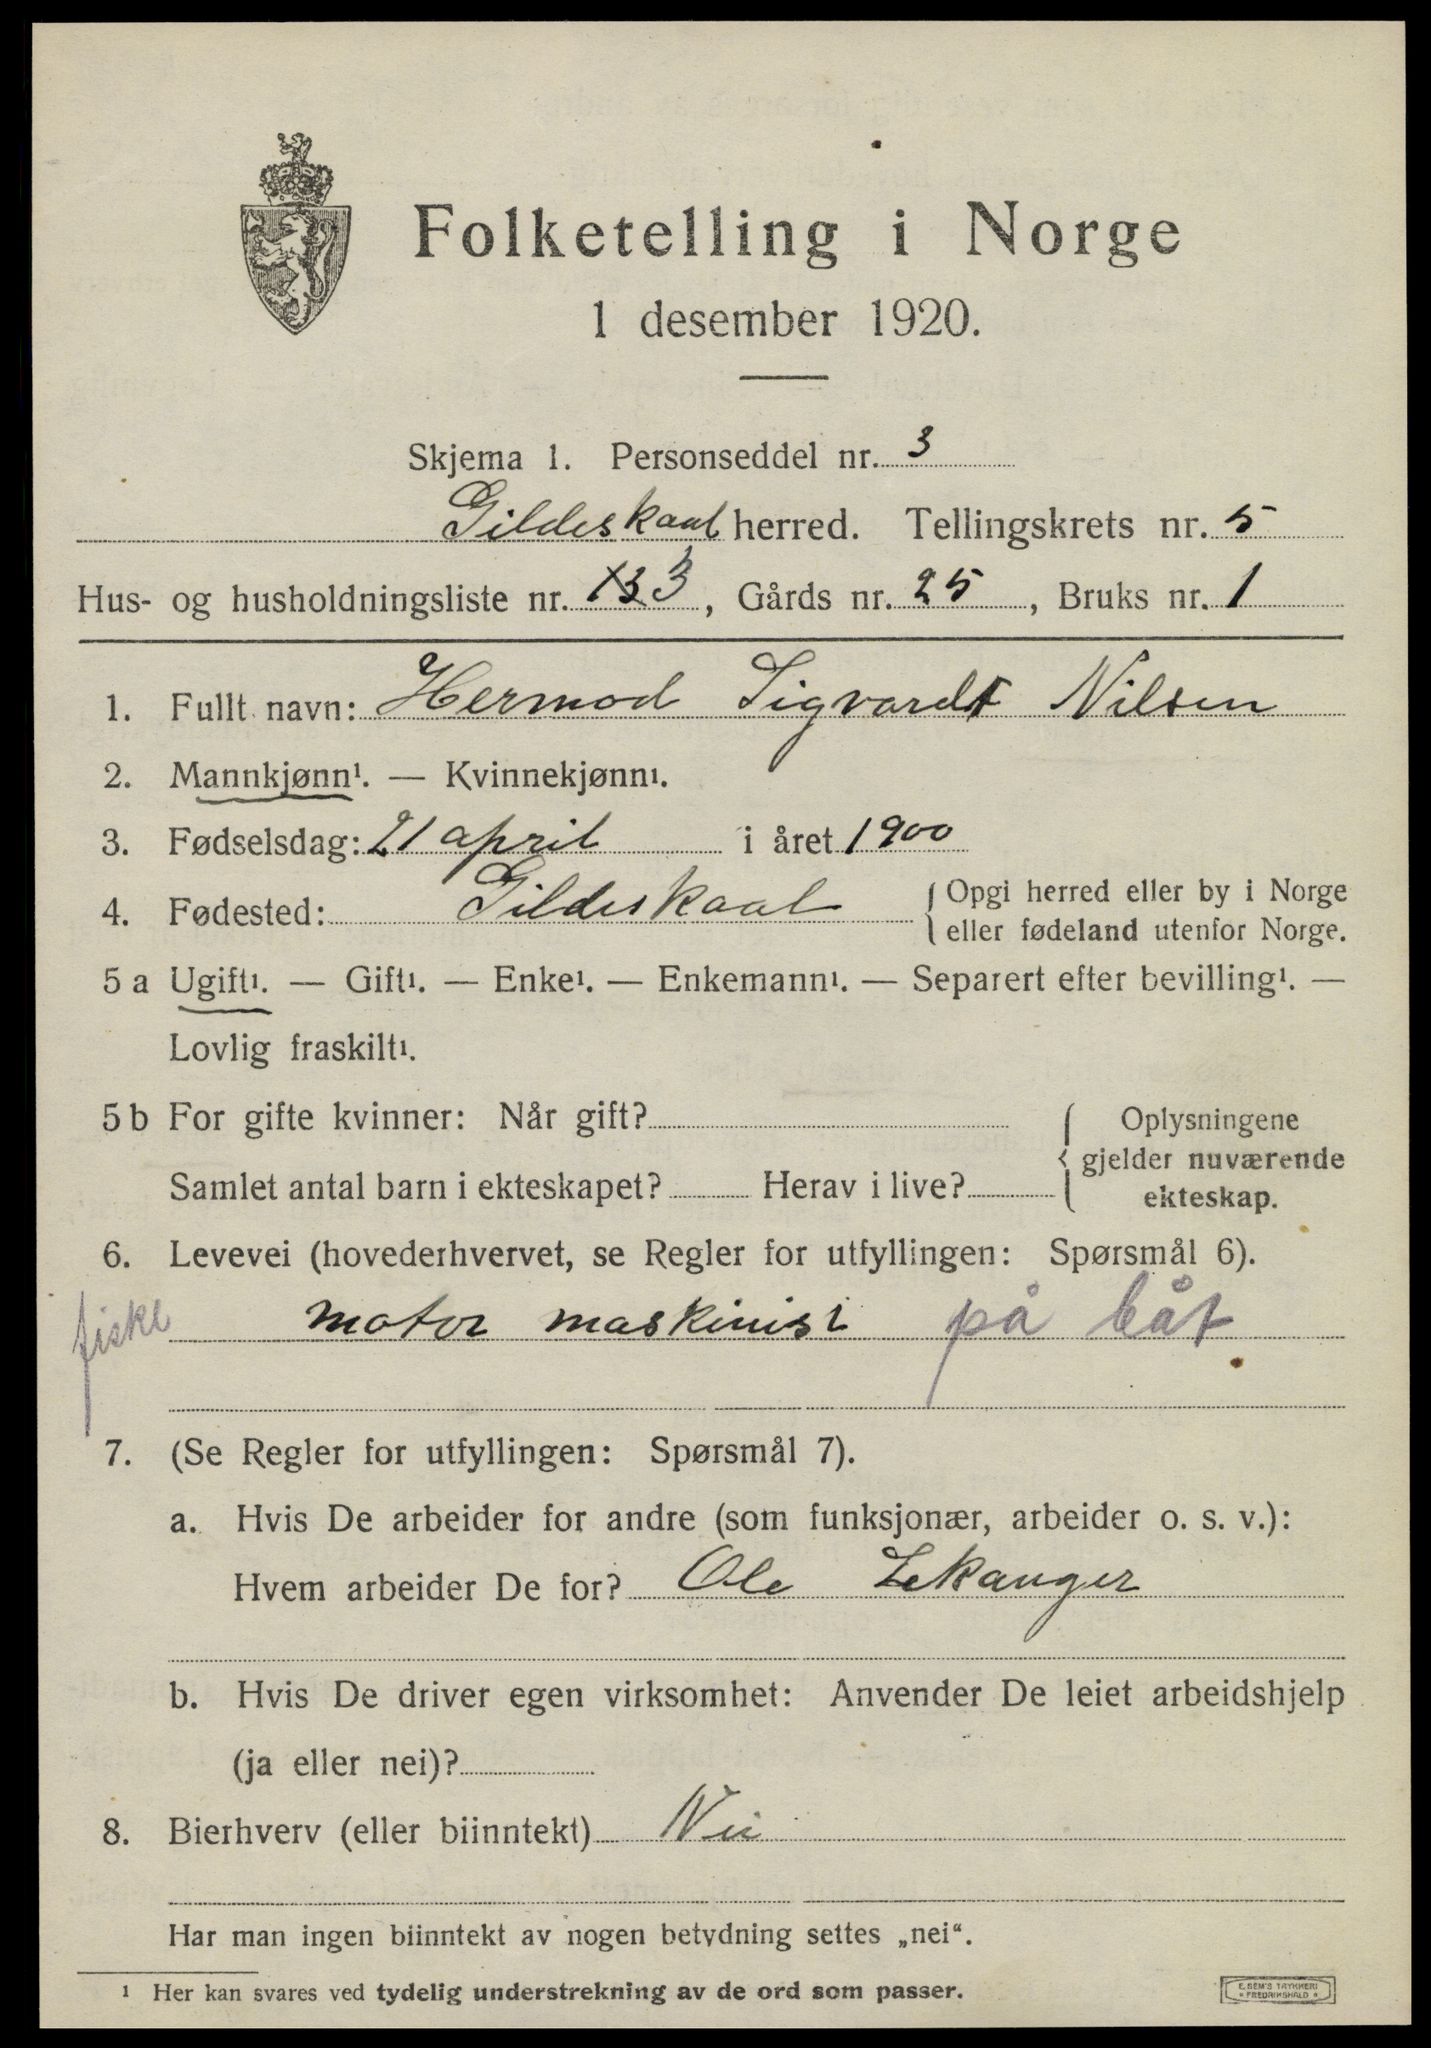 Folketelling i Norge
1 desember 1920.
Skjema 1. Personseddel nr. 3
Gildeskaal herred. Tellingskrets nr. 5
Hus- og husholdningsliste nr. 3, Gårds nr. 25, Bruks nr. 1
1. Fullt navn: Hermod Sigvardt Nilsen
2. Mannkjønn¹. — Kvinnekjønn¹.
3. Fødselsdag: 21 april i året 1900
4. Fødested: Gildeskaal { Opgi herred eller by i Norge
eller fødeland utenfor Norge.
5 a Ugift¹. — Gift¹. — Enke¹. — Enkemann¹. — Separert efter bevilling¹. —
Lovlig fraskilt¹.
5 b For gifte kvinner: Når gift? { Oplysningene
gjelder nuværende
Samlet antal barn i ekteskapet? Herav i live? ekteskap.
6. Levevei (hovederhvervet, se Regler for utfyllingen: Spørsmål 6).
fiske motor maskinist på båt
7. (Se Regler for utfyllingen: Spørsmål 7).
a. Hvis De arbeider for andre (som funksjonær, arbeider o. s. v.):
Hvem arbeider De for? Ole Lekanger
b. Hvis De driver egen virksomhet: Anvender De leiet arbeidshjelp
(ja eller nei)?
8. Bierhverv (eller biinntekt) Nei
Har man ingen biinntekt av nogen betydning settes „nei“.
¹ Her kan svares ved tydelig understrekning av de ord som passer.
E. SEM'S TRYKKERI
* FREDRIKSHALD *